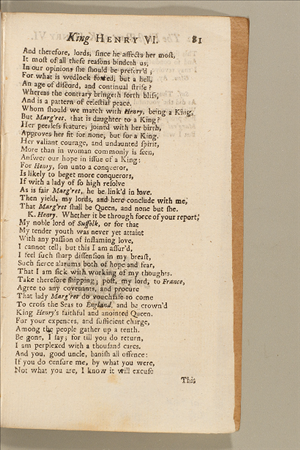 King HENRY VI. 81
And therefore, lords, since he affects her most,
It most of all these reasons bindeth us,
In our opinions she should be preferr'd;
For what is wedlock forced, but a hell,
An age of discord, and continual strife?
Whereas the contrary bringeth forth bliss,
And is a pattern of celestial peace.
Whom should we match with Henry, being a King,
But Marg'ret, that is daughter to a King?
Her peerless feature, joined with her birth,
Approves her fit for none, but for a King.
Her valiant courage, and undaunted spirit,
More than in woman commonly is seen,
Answer our hope in issue of a King:
For Henry, son unto a conqueror,
Is likely to beget more conquerors,
If with a lady of so high resolve
As is fair Marg'ret, he be link'd in love.
Then yield, my lords, and here conclude with me,
That Marg'ret shall be Queen, and none but she.
K. Henry. Whether it be through force of your report,
My noble lord of Suffolk, or for that
My tender youth was never yet attaint
With any passion of inflaming love,
I cannot tell; but this I am assur'd,
I feel such sharp dissension in my breast,
Such fierce alarums both of hope and fear,
That I am sick with working of my thoughts.
Take therefore shipping; post, my lord, to France,
Agree to any covenants, and procure
That lady Marg'ret do vouchsafe to come
To cross the Seas to England, and be crown'd
King Henry's faithful and anointed Queen.
For your expences, and sufficient charge,
Among the people gather up a tenth.
Be gone, I say; for till you do return,
I am perplexed with a thousand cares.
And you, good uncle, banish all offence:
If you do censure me, by what you were,
Not what you are, I know it will excuse
This